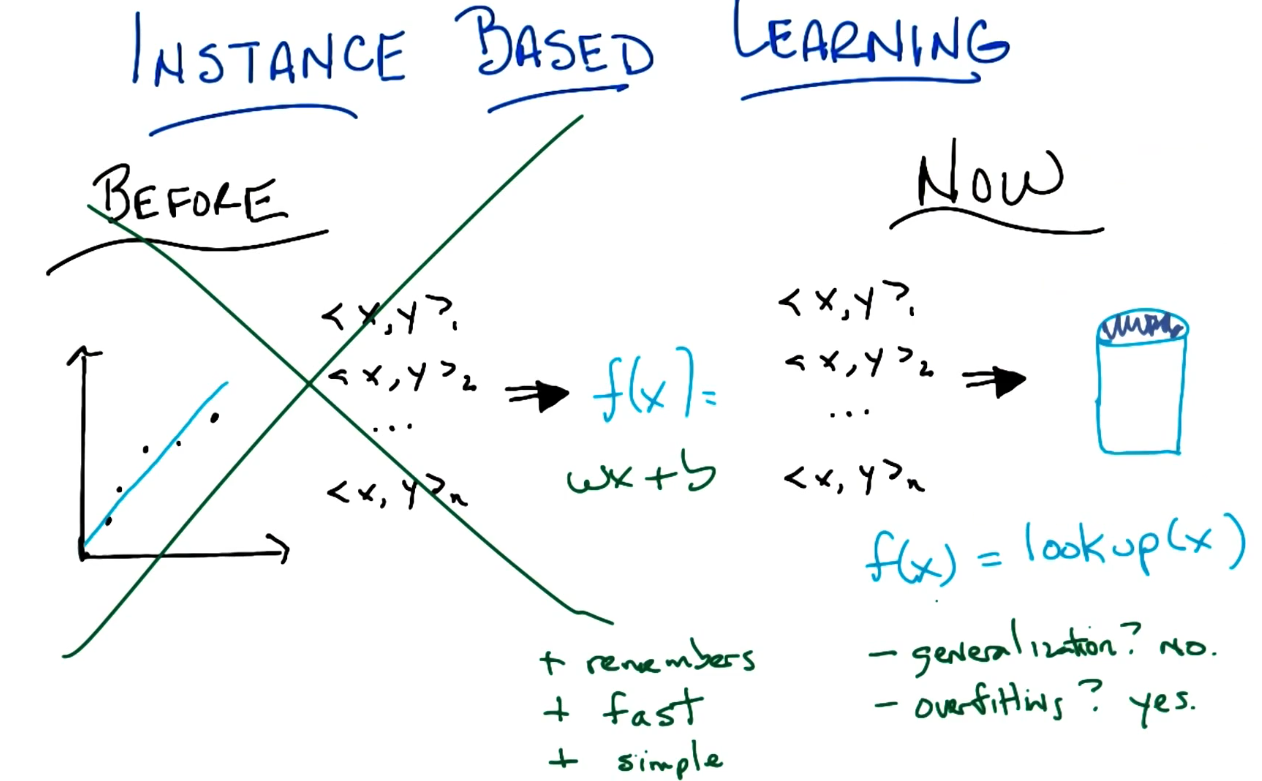 INSTANCE BASED LEARNING
BEFORE
<x,y>1
<x,y>2
...
<x,y>n
f(x)=
wx+b
NOW
<x,y>1
<x,y>2
...
<x,y>n
f(x) = lookup(x)
+ remembers
+ fast
+ simple
- generalization? no.
- overfitting? yes.